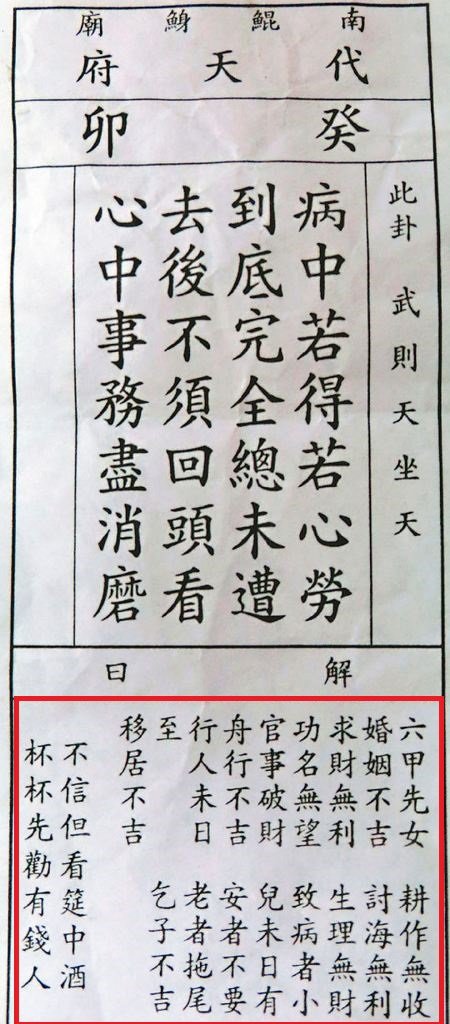 南鯤鯓廟
代天府
癸卯
此卦 武則天坐天
病中若得若心勞
到底完全總未遭
去後不須回頭看
心中事務盡消磨
解曰
六甲先女 耕作無收
婚姻不吉 討海無利
求財無利 生理無財
功名無望 致病者小
官事破財 兒未日有
舟行不吉 安者不要
行人未日 老者拖尾
至 乞子不吉
移居不吉
不信但看筵中酒
杯杯先勸有錢人